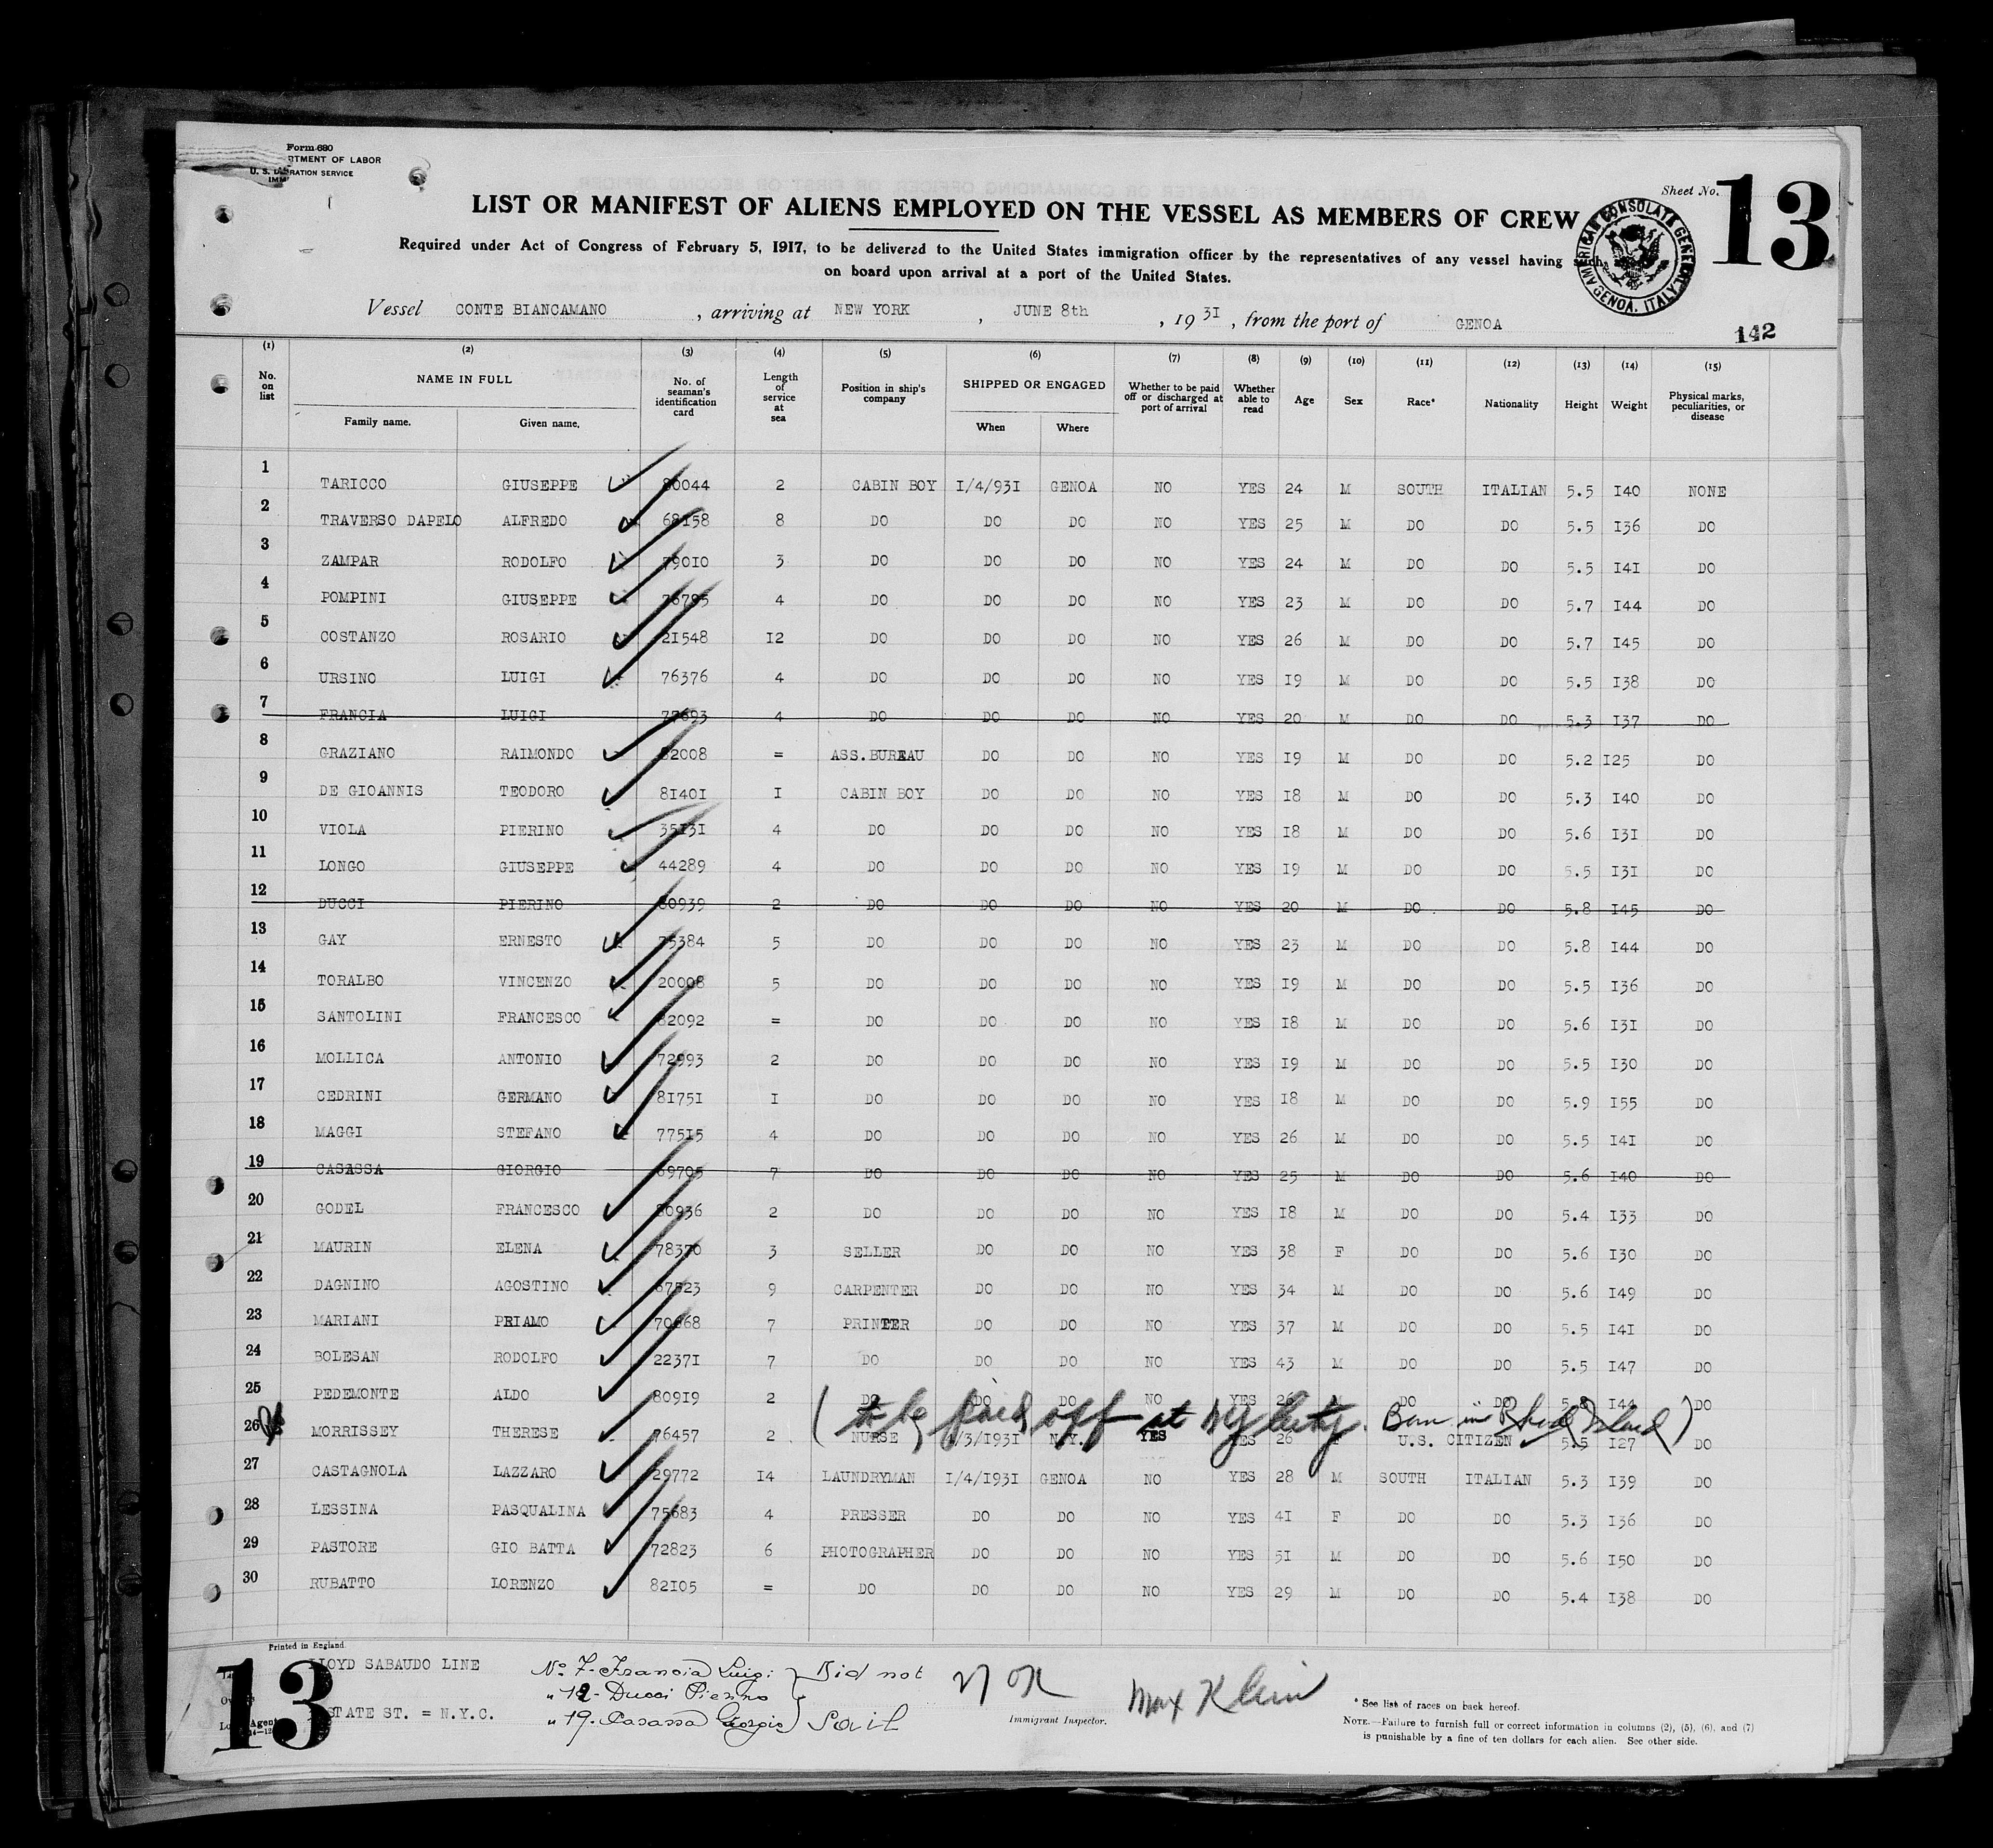 Form 680
RTMENT OF LABOR
U. S. RATION SERVICE
IMM
LIST OR MANIFEST OF ALIENS EMPLOYED ON THE VESSEL AS MEMBERS OF CREW
Sheet No. 13
AMERICAN CONSULATE GENERAL GENOA, ITALY
Required under Act of Congress of February 5, 1917, to be delivered to the United States immigration officer by the representatives of any vessel having such
on board upon arrival at a port of the United States.
Vessel CONTE BIANCAMANO, arriving at NEW YORK, JUNE 8th, 19 31, from the port of GENOA
142
(1) (2) (3) (4) (5) (6) (7) (8) (9) (10) (11) (12) (13) (14) (15)
No. on list NAME IN FULL Family name. Given name. No. of seaman's identification card Length of service at sea Position in ship's company SHIPPED OR ENGAGED When Where Whether to be paid off or discharged at port of arrival Whether able to read Age Sex Race* Nationality Height Weight Physical marks, peculiarities, or disease
1 TARICCO GIUSEPPE 80044 2 CABIN BOY I/4/93I GENOA NO YES 24 M SOUTH ITALIAN 5.5 I40 NONE
2 TRAVERSO DAPELO ALFREDO 68158 8 DO DO DO NO YES 25 M DO DO 5.5 I36 DO
3 ZAMPAR RODOLFO 79010 3 DO DO DO NO YES 24 M DO DO 5.5 I4I DO
4 POMPINI GIUSEPPE 76795 4 DO DO DO NO YES 23 M DO DO 5.7 I44 DO
5 COSTANZO ROSARIO 2I548 I2 DO DO DO NO YES 26 M DO DO 5.7 I45 DO
6 URSINO LUIGI 76376 4 DO DO DO NO YES I9 M DO DO 5.5 I38 DO
7 FRANCIA LUIGI 77693 4 DO DO DO NO YES 20 M DO DO 5.3 I37 DO
8 GRAZIANO RAIMONDO 82008 = ASS.BUREAU DO DO NO YES I9 M DO DO 5.2 I25 DO
9 DE GIOANNIS TEODORO 8I40I I CABIN BOY DO DO NO YES I8 M DO DO 5.3 I40 DO
10 VIOLA PIERINO 35I3I 4 DO DO DO NO YES I8 M DO DO 5.6 I3I DO
11 LONGO GIUSEPPE 44289 4 DO DO DO NO YES I9 M DO DO 5.5 I3I DO
12 DUCCI PIERINO 80939 2 DO DO DO NO YES 20 M DO DO 5.8 I45 DO
13 GAY ERNESTO 75384 5 DO DO DO NO YES 23 M DO DO 5.8 I44 DO
14 TORALBO VINCENZO 20008 5 DO DO DO NO YES I9 M DO DO 5.5 I36 DO
15 SANTOLINI FRANCESCO 82092 = DO DO DO NO YES I8 M DO DO 5.6 I3I DO
16 MOLLICA ANTONIO 72993 2 DO DO DO NO YES I9 M DO DO 5.5 I30 DO
17 CEDRINI GERMANO 8I75I I DO DO DO NO YES I8 M DO DO 5.9 I55 DO
18 MAGGI STEFANO 775I5 4 DO DO DO NO YES 26 M DO DO 5.5 I4I DO
19 CASASSA GIORGIO 69705 7 DO DO DO NO YES 25 M DO DO 5.6 I40 DO
20 GODEL FRANCESCO 80936 2 DO DO DO NO YES I8 M DO DO 5.4 I33 DO
21 MAURIN ELENA 78370 3 SELLER DO DO NO YES 38 F DO DO 5.6 I30 DO
22 DAGNINO AGOSTINO 67523 9 CARPENTER DO DO NO YES 34 M DO DO 5.6 I49 DO
23 MARIANI PRIAMO 70668 7 PRINTER DO DO NO YES 37 M DO DO 5.5 I4I DO
24 BOLESAN RODOLFO 2237I 7 DO DO DO NO YES 43 M DO DO 5.5 I47 DO
25 PEDEMONTE ALDO 80919 2 DO DO DO NO YES 26 M DO DO 5.8 I44 DO
(to be paid off at NY City. Born in Rhode Island)
26 MORRISSEY THERESE 76457 2 NURSE /3/I93I N.Y. YES YES 26 U.S. CITIZEN 5.5 I27 DO
27 CASTAGNOLA LAZZARO 29772 I4 LAUNDRYMAN I/4/I93I GENOA NO YES 28 M SOUTH ITALIAN 5.3 I39 DO
28 LESSINA PASQUALINA 75683 4 PRESSER DO DO NO YES 4I F DO DO 5.3 I36 DO
29 PASTORE GIO BATTA 72823 6 PHOTOGRAPHER DO DO NO YES 5I M DO DO 5.6 I50 DO
30 RUBATTO LORENZO 82I05 = DO DO DO NO YES 29 M DO DO 5.4 I38 DO
Printed in England.
13
LLOYD SABAUDO LINE
STATE ST. = N.Y.C.
No 7- Francia Luigi } Did not
" 12- Ducci Pierino
" 19. Casassa Giorgio } Sail
Max Klein
Immigrant Inspector.
* See list of races on back hereof.
NOTE.—Failure to furnish full or correct information in columns (2), (5), (6), and (7)
is punishable by a fine of ten dollars for each alien. See other side.